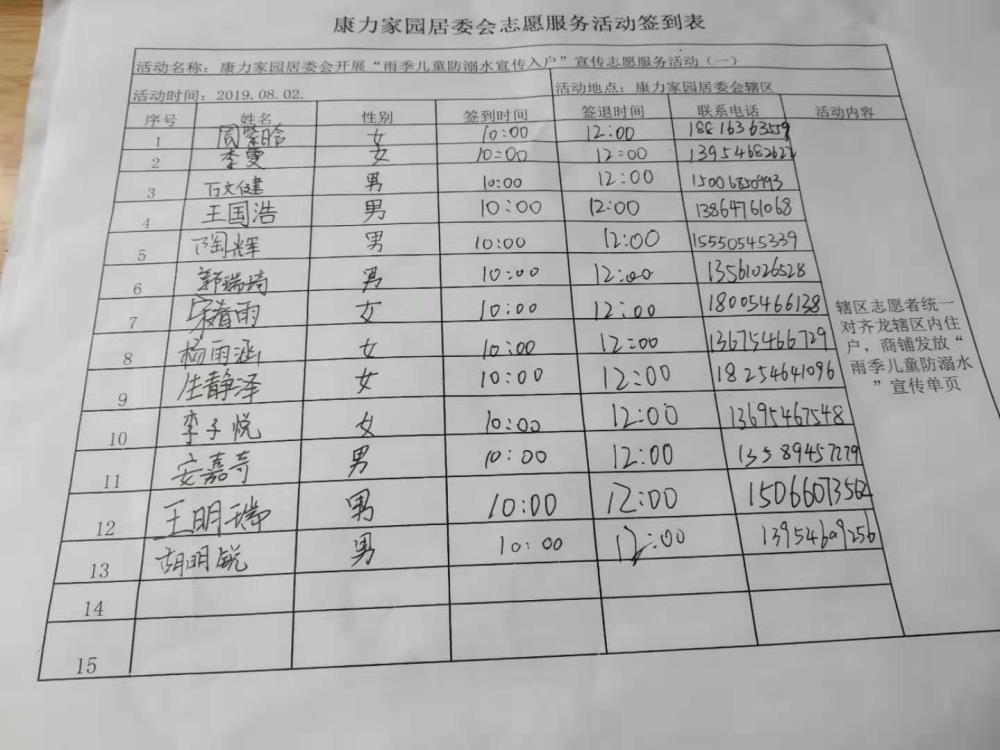 康力家园居委会志愿服务活动签到表
活动名称：康力家园居委会开展“雨季儿童防溺水宣传入户”宣传志愿服务活动（一）
活动时间：2019.08.02. 活动地点：康力家园居委会辖区
序号 姓名 性别 签到时间 签退时间 联系电话 活动内容
1 周紫晗 女 10:00 12:00 18816363559
2 李雯 女 10:00 12:00 13954682622
3 万文健 男 10:00 12:00 15006850993
4 王国浩 男 10:00 12:00 13864761068
5 陶辉 男 10:00 12:00 15550545339
6 郭瑞琦 男 10:00 12:00 13561026528
7 宋春雨 女 10:00 12:00 18005466138
8 杨雨涵 女 10:00 12:00 13675466729
9 任静泽 女 10:00 12:00 18254641096
10 李子悦 女 10:00 12:00 13695467548
11 安嘉奇 男 10:00 12:00 13589457279
12 王明瑞 男 10:00 12:00 15066073564
13 胡明锐 男 10:00 12:00 13954609256
14
15
辖区志愿者统一
对齐龙辖区内住
户，商铺发放“
雨季儿童防溺水
”宣传单页